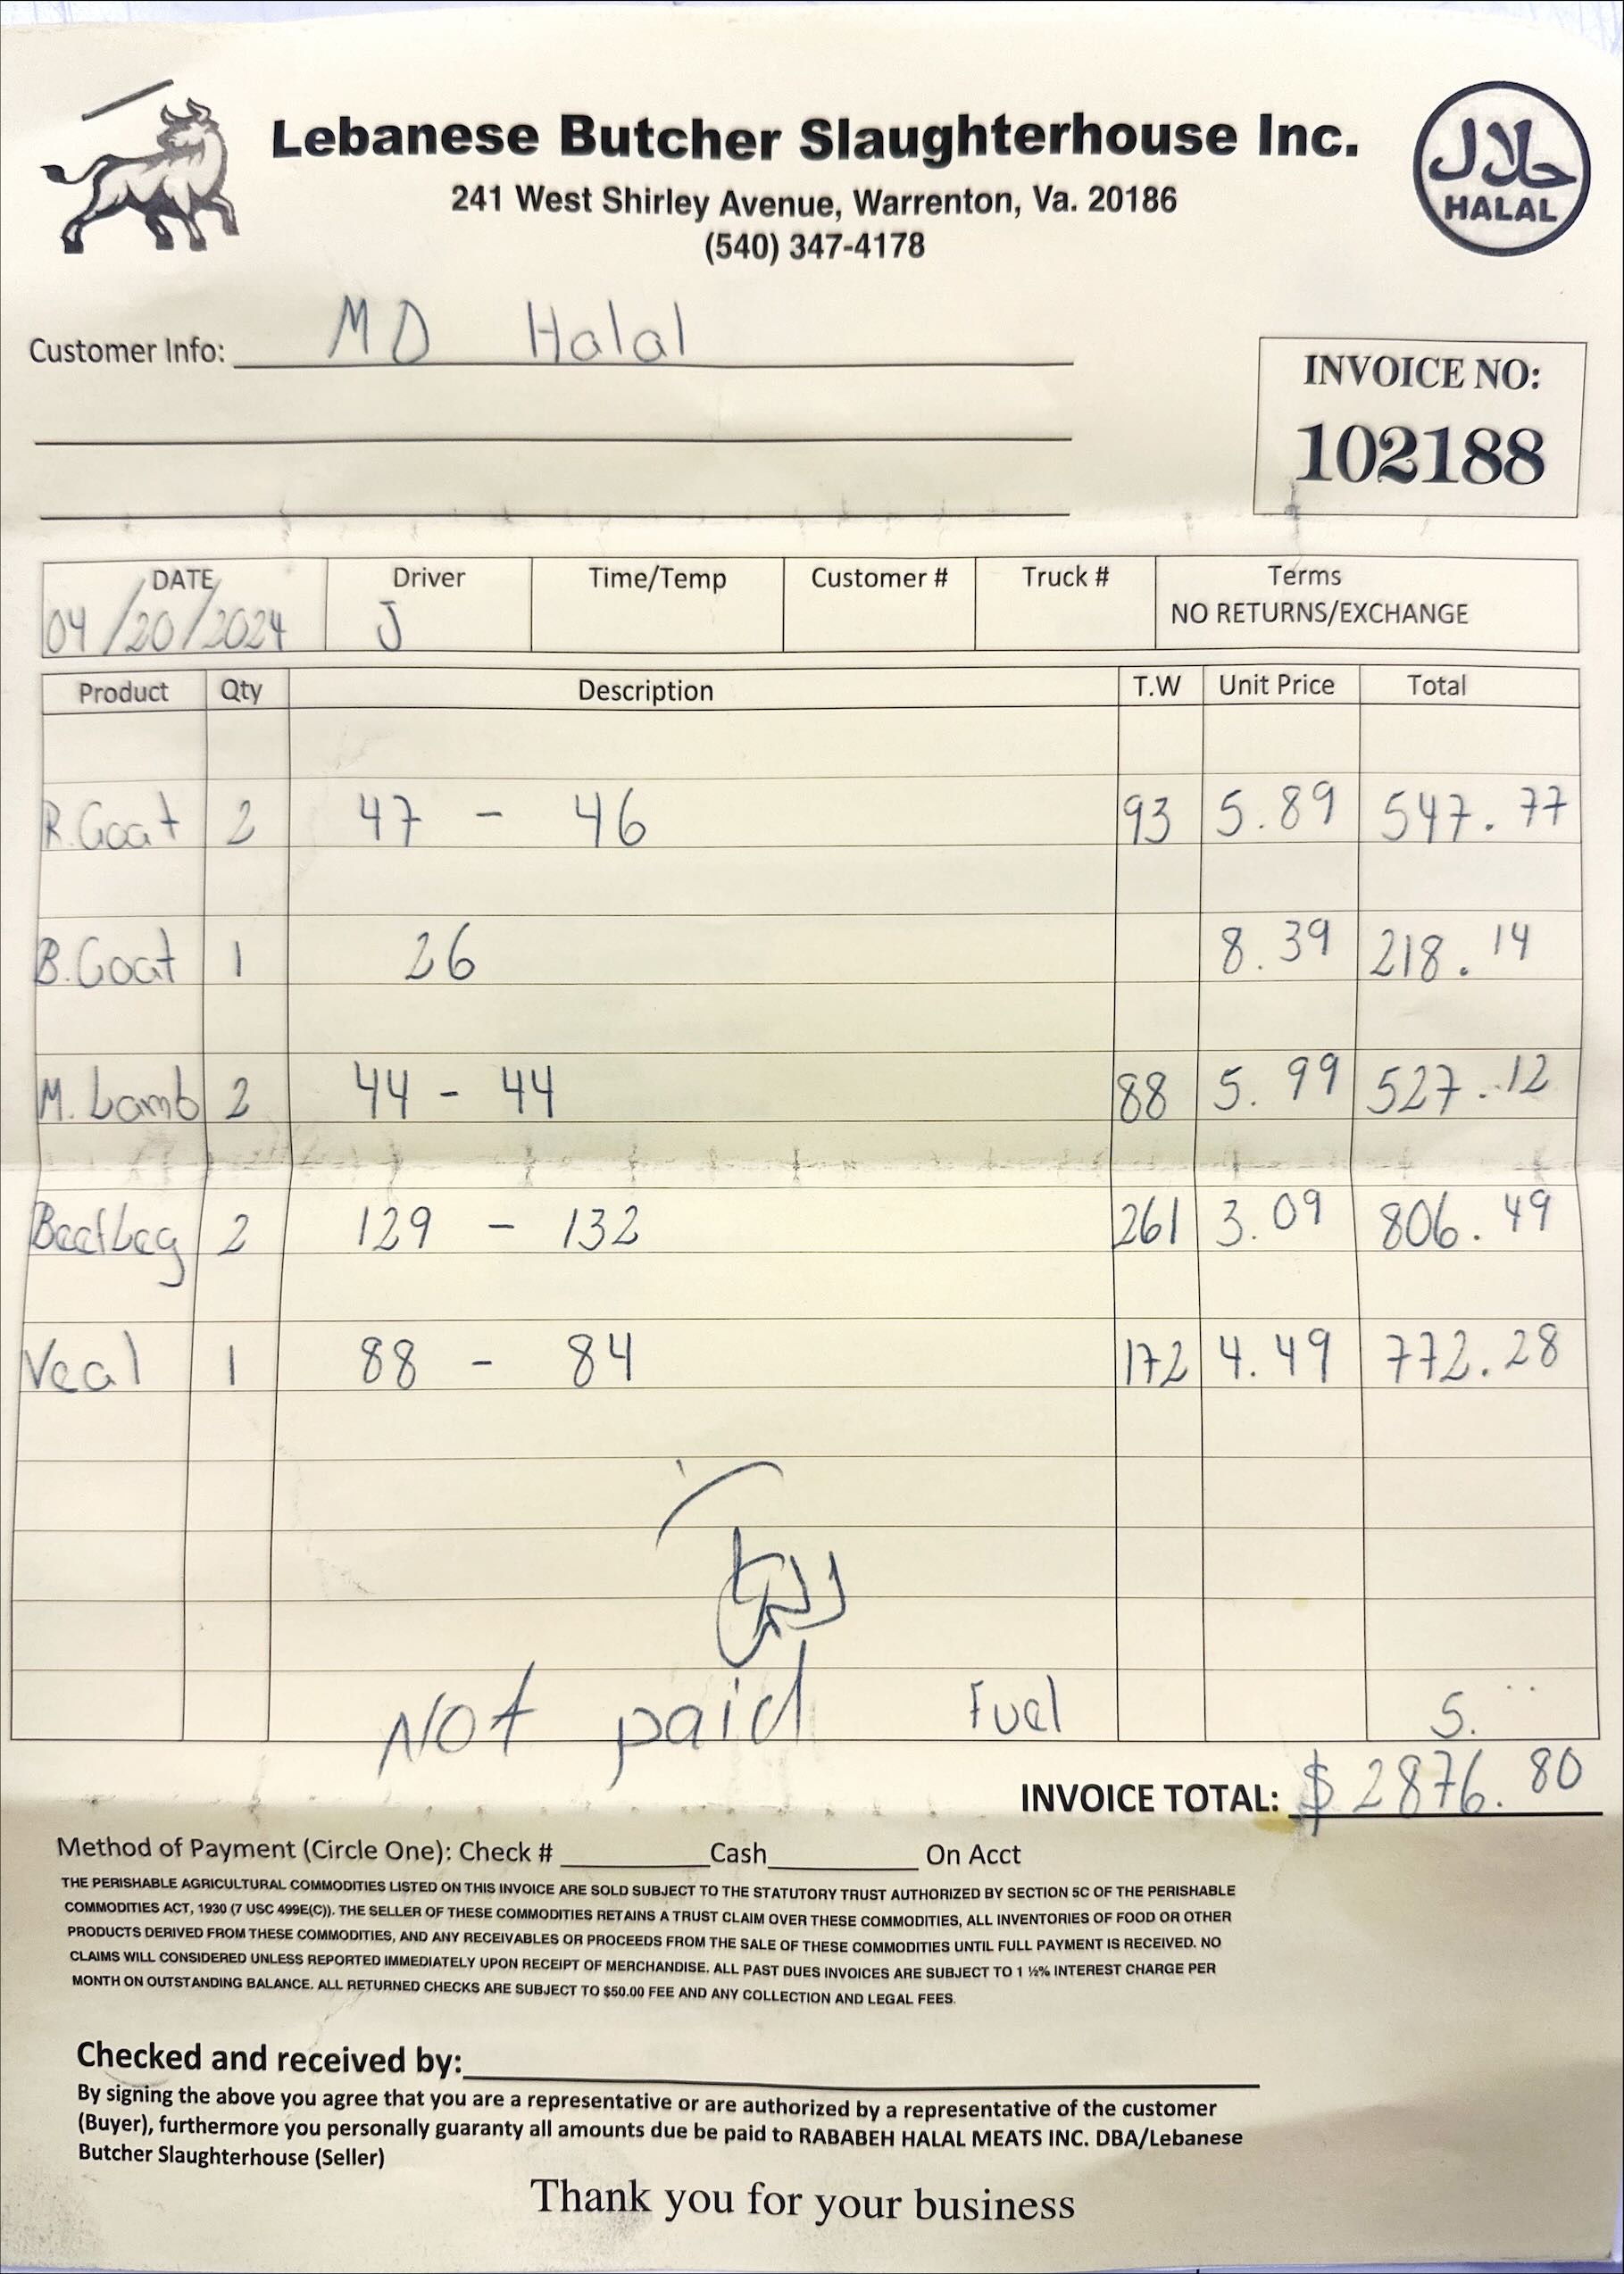 Lebanese Butcher Slaughterhouse Inc.
241 West Shirley Avenue, Warrenton, Va. 20186
(540) 347-4178
حلال
HALAL
Customer Info: MD Halal
INVOICE NO:
102188
DATE Driver Time/Temp Customer # Truck # Terms
04/20/2024 J NO RETURNS/EXCHANGE
Product Qty Description T.W Unit Price Total
R.Goat 2 47 - 46 93 5.89 547.77
B.Goat 1 26 8.39 218.14
M. Lamb 2 44 - 44 88 5.99 527.12
BeefLeg 2 129 - 132 261 3.09 806.49
Veal 1 88 - 84 172 4.49 772.28
Not paid Fuel 5.
INVOICE TOTAL: $2876.80
Method of Payment (Circle One): Check # ________Cash________ On Acct
THE PERISHABLE AGRICULTURAL COMMODITIES LISTED ON THIS INVOICE ARE SOLD SUBJECT TO THE STATUTORY TRUST AUTHORIZED BY SECTION 5C OF THE PERISHABLE
COMMODITIES ACT, 1930 (7 USC 499E(C)). THE SELLER OF THESE COMMODITIES RETAINS A TRUST CLAIM OVER THESE COMMODITIES, ALL INVENTORIES OF FOOD OR OTHER
PRODUCTS DERIVED FROM THESE COMMODITIES, AND ANY RECEIVABLES OR PROCEEDS FROM THE SALE OF THESE COMMODITIES UNTIL FULL PAYMENT IS RECEIVED. NO
CLAIMS WILL CONSIDERED UNLESS REPORTED IMMEDIATELY UPON RECEIPT OF MERCHANDISE. ALL PAST DUES INVOICES ARE SUBJECT TO 1 ½% INTEREST CHARGE PER
MONTH ON OUTSTANDING BALANCE. ALL RETURNED CHECKS ARE SUBJECT TO $50.00 FEE AND ANY COLLECTION AND LEGAL FEES.
Checked and received by:
By signing the above you agree that you are a representative or are authorized by a representative of the customer
(Buyer), furthermore you personally guaranty all amounts due be paid to RABABEH HALAL MEATS INC. DBA/Lebanese
Butcher Slaughterhouse (Seller)
Thank you for your business